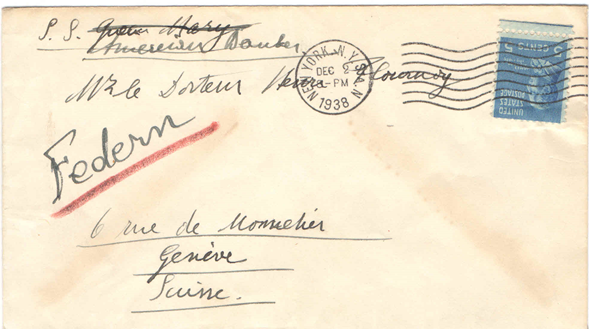 S. S. Queen Mary
American Banker
Mr le Docteur Henri Flournoy
NEW YORK, N.Y.
DEC 2
8-PM
1938
5 CENTS 5
UNITED
STATES
POSTAGE
Federn
6 rue de Monnetier
Genève
Suisse.